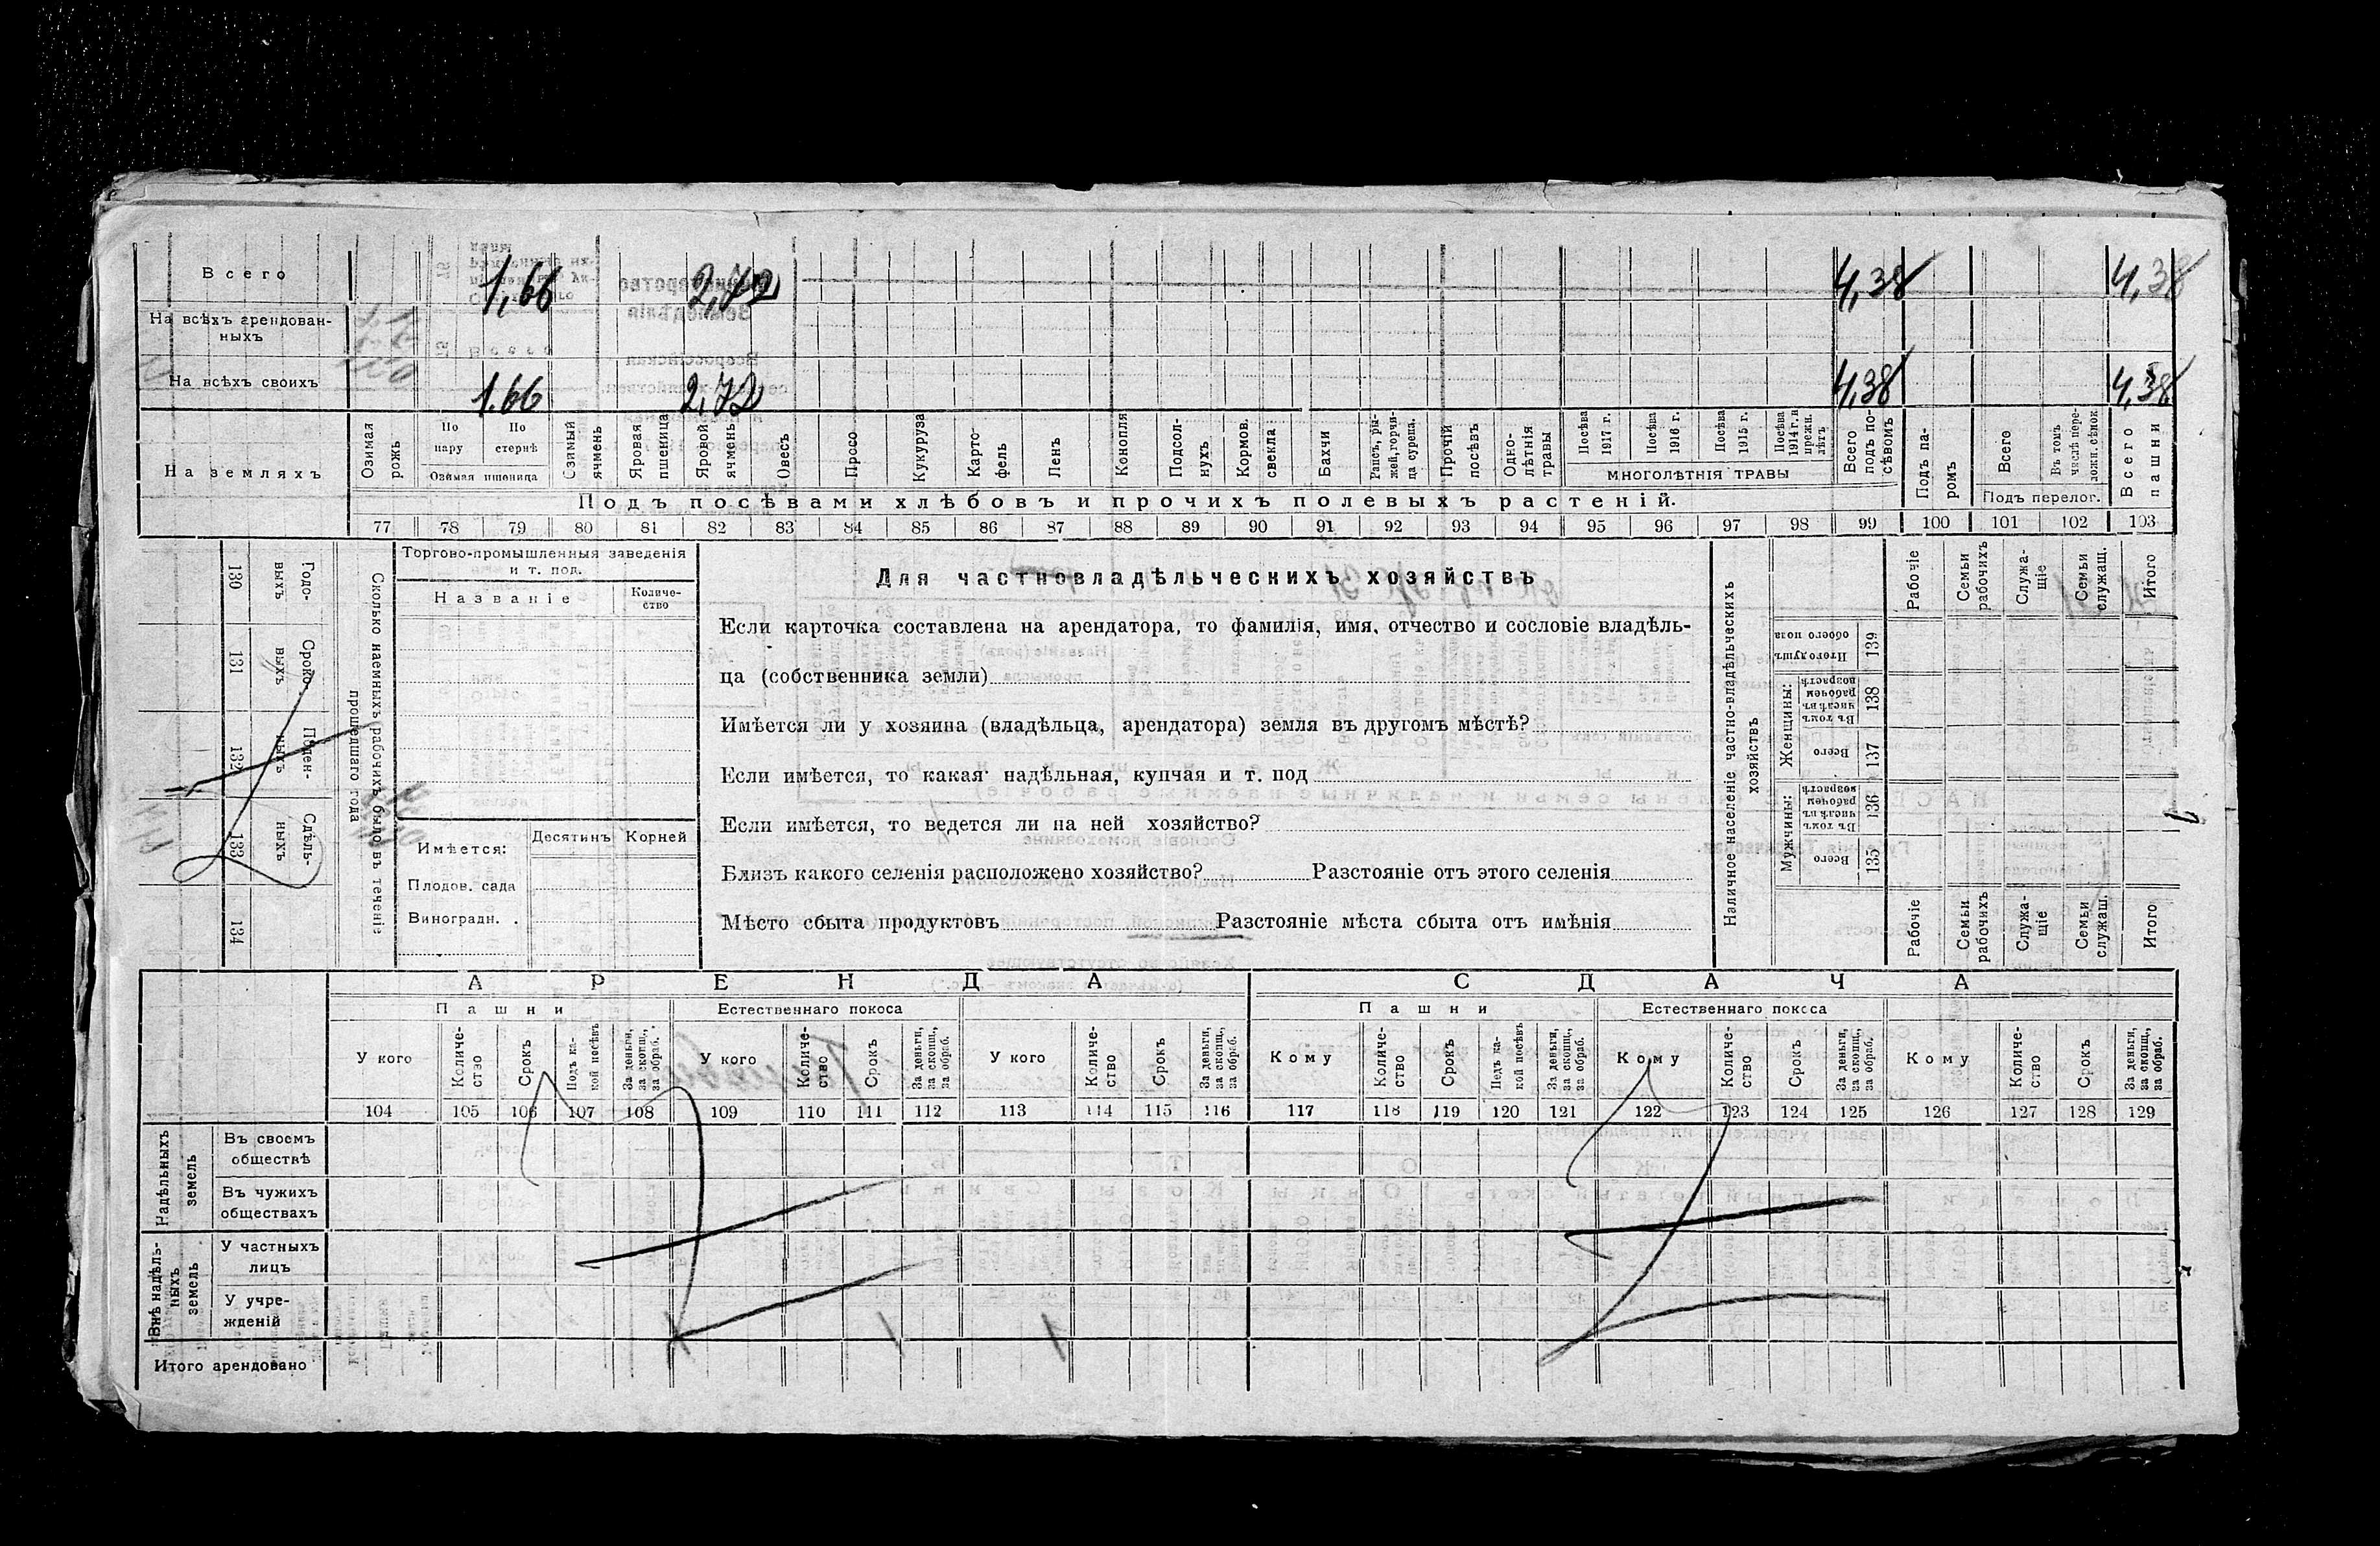 Всего 1,66 2,72 4,38 4,38
На всѣхъ арендован-
ныхъ
На всѣхъ своихъ 1.66 2,72 4,38 4,38
На земляхъ
Озимая рожь
По пару
По стернѣ
Озимая пшеница
Озимый ячмень
Яровая пшеница
Яровой ячмень
Овесъ
Просо
Кукуруза
Карто-
фель
Ленъ
Конопля
Подсол-
нухъ
Кормов. свекла
Бахчи
Рапсъ, ры-
жей, горчи-
ца сурепа.
Прочій посѣвъ
Одно-
лѣтнія
травы
Посѣва 1917 г.
Посѣва 1916 г.
Посѣва 1915 г.
Посѣва 1914 г. и прежн. лѣтъ
МНОГОЛѢТНІЯ ТРАВЫ
Всего подъ по-
сѣвомъ
Подъ па-
ромъ
Всего
Въ томъ числѣ пере-
ложн. сѣнок.
Подъ перелог.
Всего пашни
Подъ посѣвами хлѣбовъ и прочихъ полевыхъ растеній.
77 78 79 80 81 82 83 84 85 86 87 88 89 90 91 92 93 94 95 96 97 98 99 100 101 102 103
130 Годо-
выхъ
131 Сроко-
выхъ
132 Поден-
ныхъ
133 Сдѣль-
ныхъ
134
Сколько наемныхъ рабочихъ было въ теченіе
прошедшаго года
Торгово-промышленныя заведенія
и т. под.
Названіе
Количе-
ство
Имѣется:
Десятинъ Корней
Плодов. сада
Виноградн. .
Для частновладѣльческихъ хозяйствъ
Если карточка составлена на арендатора, то фамилія, имя, отчество и сословіе владѣль-
ца (собственника земли)
Имѣется ли у хозяина (владѣльца, арендатора) земля въ другомъ мѣстѣ?
Если имѣется, то какая надѣльная, купчая и т. под
Если имѣется, то ведется ли на ней хозяйство?
Близъ какого селенія расположено хозяйство? Разстояніе отъ этого селенія
Мѣсто сбыта продуктовъ Разстояніе мѣста сбыта отъ имѣнія
Наличное населеніе частно-владѣльческихъ
хозяйствъ
Рабочіе
Семьи рабочихъ
Служа-
щіе
Семьи служащ.
Итого
Итого душъ
обоего пола
139
Женщины:
Въ томъ
числѣ въ
рабочем
возрастѣ
138
Всего
137
Мужчины:
Въ томъ
числѣ въ
рабочем
возрастѣ
136
Всего
135
Рабочіе
Семьи рабочихъ
Служа-
щіе
Семьи служащ.
Итого
АРЕНДА СДАЧА
Пашни Естественнаго покоса Пашни Естественнаго покоса
У кого
Количе-
ство
Срокъ
Подъ ка-
кой посѣвъ
За деньги,
за скопщ.,
за обраб.
У кого
Количе-
ство
Срокъ
За деньги,
за скопщ.,
за обраб.
У кого
Количе-
ство
Срокъ
За деньги,
за скопщ.,
за обраб.
Кому
Количе-
ство
Срокъ
Подъ ка-
кой посѣвъ
За деньги,
за скопщ.,
за обраб.
Кому
Количе-
ство
Срокъ
За деньги,
за скопщ.,
за обраб.
Кому
Количе-
ство
Срокъ
За деньги,
за скопщ.,
за обраб.
104 105 106 107 108 109 110 111 112 113 114 115 116 117 118 119 120 121 122 123 124 125 126 127 128 129
Надѣльныхъ
земель
Въ своемъ
обществѣ
Въ чужихъ
обществахъ
Внѣ надѣль-
ныхъ
земель
У частныхъ
лицъ
У учре-
жденій
Итого арендовано